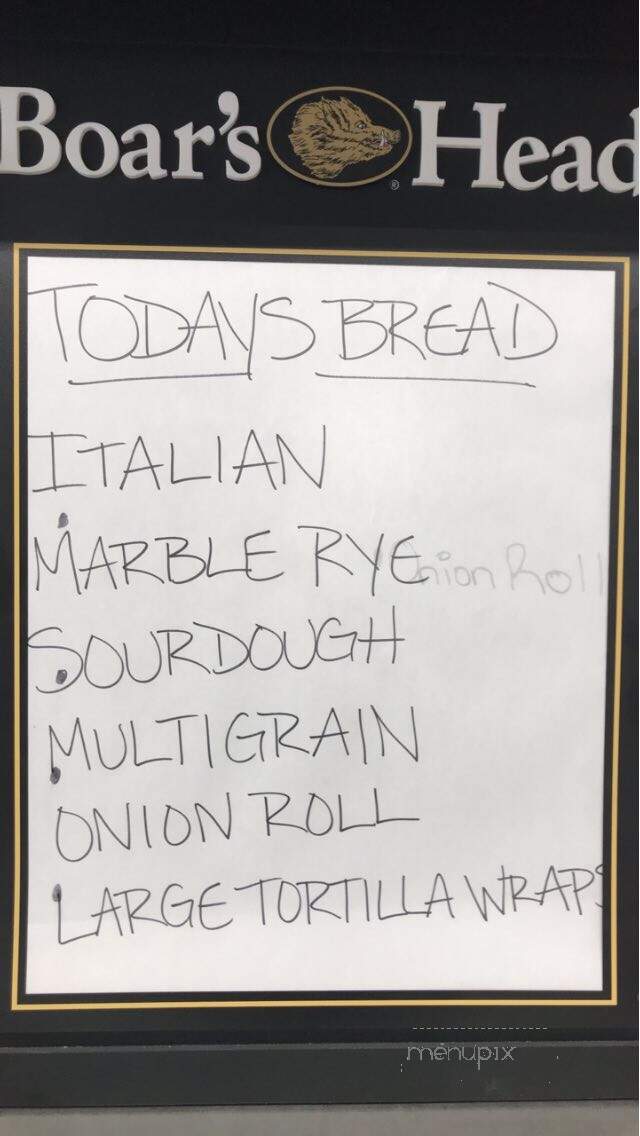 Boar's Head
®
TODAYS BREAD
ITALIAN
MARBLE RYE
Onion Roll
SOURDOUGH
MULTIGRAIN
ONION ROLL
LARGE TORTILLA WRAPS
menupix